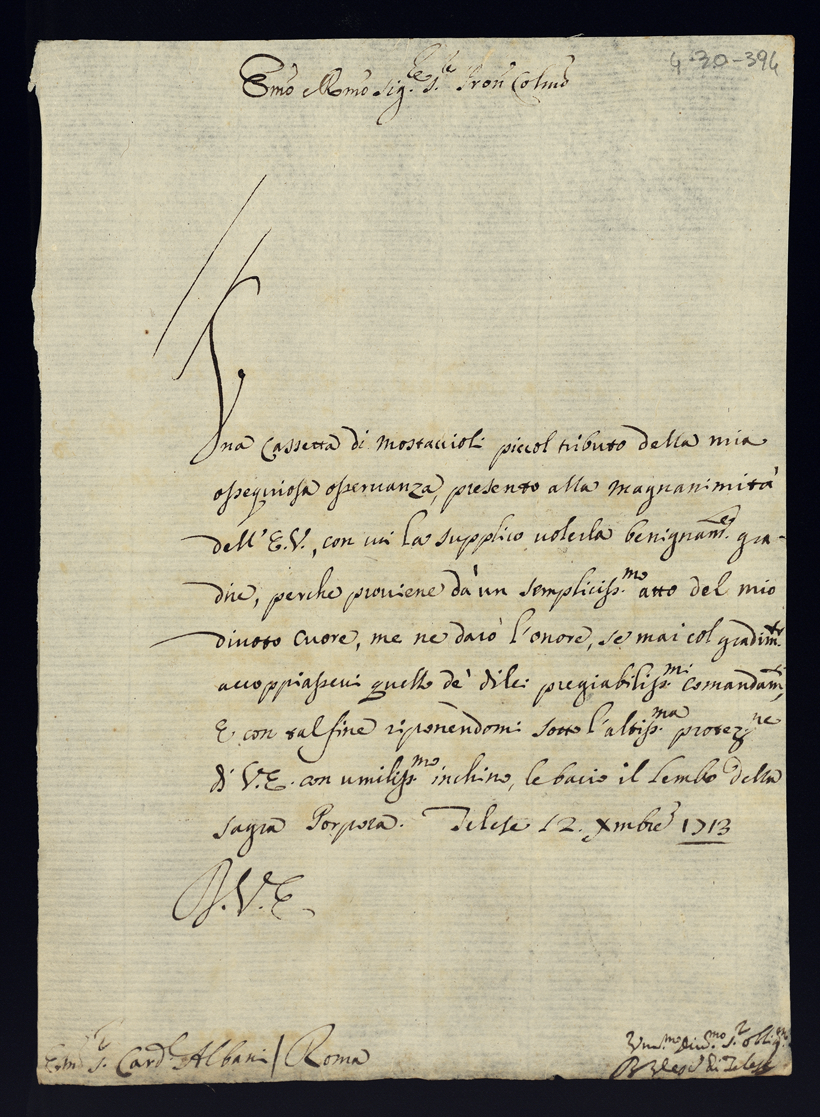 4-20-394
Em̃o Rm̃o Sig.re S.r Pron Colmo
Una cassetta di mostaccioli piccol tributo della mia
ossequiosa osseruanza, presento alla magnanimità
dell' E.V., con cui la supplico uolerla benignam.te gra-
dire, perche prouiene dà un sempliciss.mo atto del mio
diuoto cuore, me ne darò l'onore, se mai col gradim.to
accoppiasseui quello de' di lei pregiabiliss.mi comandam.ti,
E con tal fine riponendomi sotto l'altiss.ma protez.ne
di V.E. con umiliss.mo inchino, le bacio il lembo della
sagra Porpora. Telese 12. Xmbre 1713
D.V.E.
Em̃o S.r Card.l Albani / Roma
Vm.mo Diu.mo S.r obblig.mo
Vesc.o di Telese